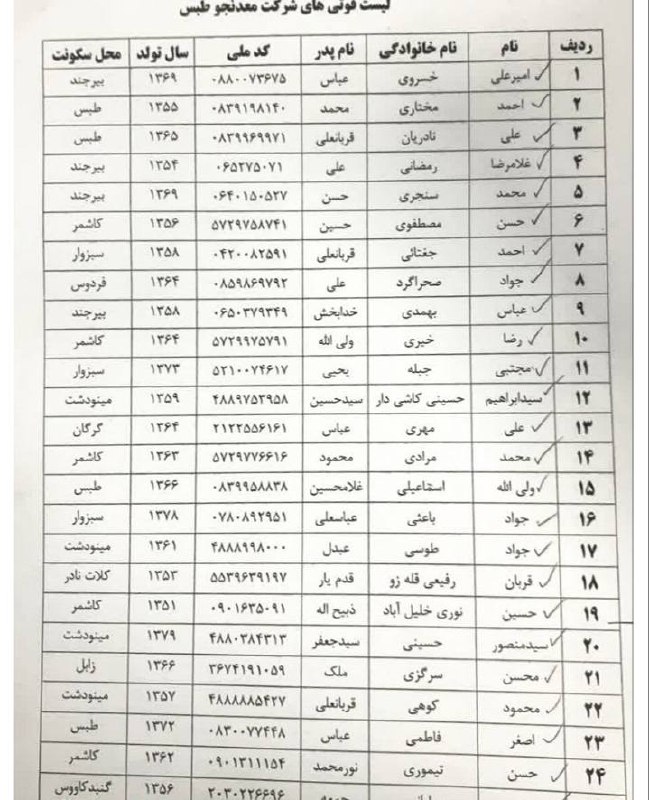 لیست فوتی های شرکت معدنجو طبس
ردیف نام نام خانوادگی نام پدر کد ملی سال تولد محل سکونت
۱ امیرعلی خسروی عباس ۰۸۸۰۰۷۳۶۷۵ ۱۳۶۹ بیرجند
۲ احمد مختاری محمد ۰۸۳۹۱۹۸۱۴۰ ۱۳۵۵ طبس
۳ علی نادریان قربانعلی ۰۸۳۹۹۶۹۹۷۱ ۱۳۶۵ طبس
۴ غلامرضا رمضانی علی ۰۶۵۲۷۵۰۷۱ ۱۳۵۴ بیرجند
۵ محمد سنجری حسن ۰۶۴۰۱۵۰۵۲۷ ۱۳۶۹ بیرجند
۶ حسن مصطفوی حسین ۵۷۲۹۷۵۸۷۴۱ ۱۳۵۶ کاشمر
۷ احمد جغتائی قربانعلی ۰۴۲۰۰۸۲۵۹۱ ۱۳۵۸ سبزوار
۸ جواد صحراگرد علی ۰۸۵۹۸۶۹۷۹۲ ۱۳۶۴ فردوس
۹ عباس بهمدی خدابخش ۰۶۵۰۳۷۹۳۴۹ ۱۳۵۸ بیرجند
۱۰ رضا خیری ولی الله ۵۷۲۹۹۷۵۷۹۱ ۱۳۶۴ کاشمر
۱۱ مجتبی جبله یحیی ۵۲۱۰۰۷۴۶۱۷ ۱۳۷۳ سبزوار
۱۲ سیدابراهیم حسینی کاشی دار سیدحسین ۴۸۸۹۷۵۲۹۵۸ ۱۳۵۹ مینودشت
۱۳ علی مهری عباس ۲۱۲۲۵۵۶۱۶۱ ۱۳۶۴ گرگان
۱۴ محمد مرادی محمود ۵۷۲۹۷۷۶۶۱۶ ۱۳۶۳ کاشمر
۱۵ ولی الله اسماعیلی غلامحسین ۰۸۳۹۹۵۸۸۳۸ ۱۳۶۶ طبس
۱۶ جواد باعثی عباسعلی ۰۷۸۰۸۹۲۹۵۱ ۱۳۷۸ سبزوار
۱۷ جواد طوسی عبدل ۴۸۸۸۹۹۸۰۰۰ ۱۳۶۱ مینودشت
۱۸ قربان رفیعی قله زو قدم یار ۵۵۳۹۶۳۹۱۹۷ ۱۳۵۳ کلات نادر
۱۹ حسین نوری خلیل آباد ذبیح اله ۰۹۰۱۶۳۵۰۹۱ ۱۳۵۱ کاشمر
۲۰ سیدمنصور حسینی سیدجعفر ۴۸۸۰۳۸۴۳۱۳ ۱۳۷۹ مینودشت
۲۱ محسن سرگزی ملک ۳۶۷۴۱۹۱۰۵۹ ۱۳۶۶ زابل
۲۲ محمود کوهی قربانعلی ۴۸۸۸۸۸۵۴۲۷ ۱۳۵۷ مینودشت
۲۳ اصغر فاطمی عباس ۰۸۳۰۰۷۷۴۴۸ ۱۳۷۲ طبس
۲۴ حسن تیموری نورمحمد ۰۹۰۱۳۱۱۱۵۴ ۱۳۶۲ کاشمر
۲۰۳۰۲۲۶۶۹۶ ۱۳۵۶ گنبدکاووس